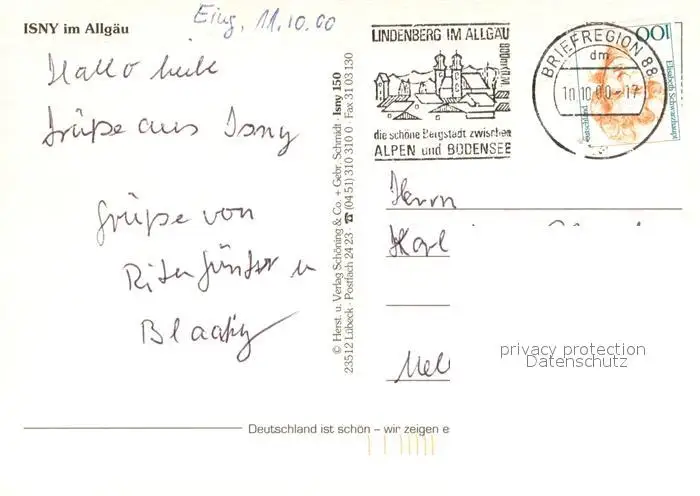 Eing. 11.10.00
ISNY im Allgäu
Hallo
Grüße aus Isny
Grüße von
Rita Günter u
Blacky
© Herst. u. Verlag Schöning & Co. + Gebr. Schmidt · Isny 150
23512 Lübeck · Postfach 24 23 · ☎ (04 51) 310 310 0 · Fax 31 03 130
LINDENBERG IM ALLGÄU
800m ü.M.
die schöne Bergstadt zwischen
ALPEN und BODENSEE
BRIEFREGION 88
dm
10.10.00-17
100
Elisabeth Schwarzhaupt
Herrn
Karl
privacy protection
Datenschutz
Deutschland ist schön – wir zeigen e